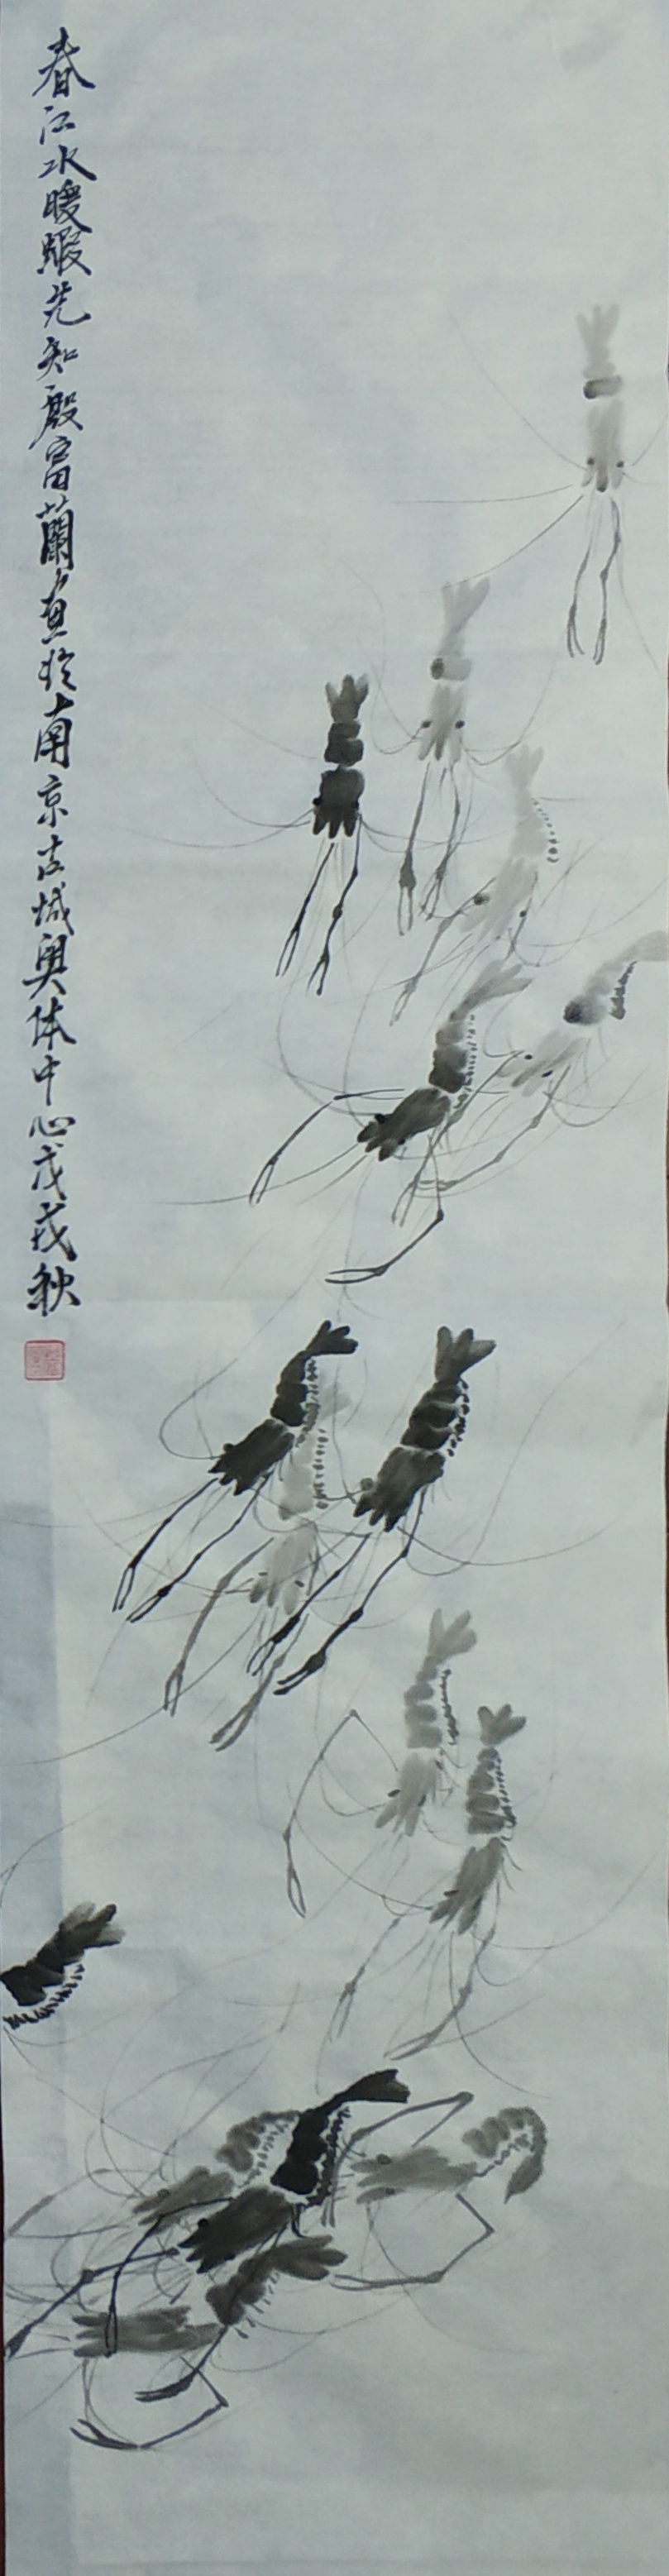 春江水暖鰕先知殷富蘭画於南京古城奥体中心戊戌秋